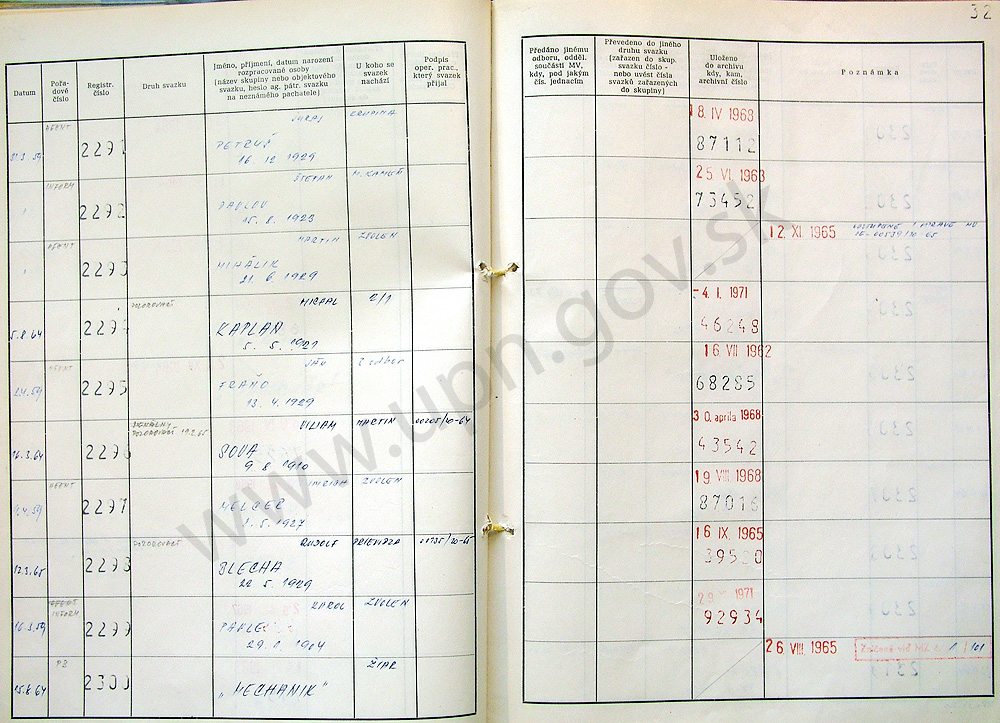 32
Datum
Pořadové číslo
Registr. číslo
Druh svazku
Jméno, příjmení, datum narození
rozpracované osoby
(název skupiny nebo objektového
svazku, heslo ag. pátr. svazku
na neznámého pachatele)
U koho se
svazek
nachází
Podpis
oper. prac.,
který svazek
přijal
Předáno jinému
odboru, odděl.
součásti MV,
kdy, pod jakým
čís. jednacím
Převedeno do jiného
druhu svazku
(zařazen do skup.
svazku číslo -
nebo uvést čísla
svazků zařazených
do skupiny)
Uloženo
do archivu
kdy, kam,
archivní číslo
Poznámka
AGENT
JURAJ KRUPINA
2291 PETRUŠ
16. 12 1929
18. IV 1968
87112
INFORM
ŠTEFAN
2292 PAVLOV
15. 8. 1923
25. VI. 1963
73452
AGENT
MARTIN ZVOLEN
2293 MIHÁLIK
21. 6. 1929
12. XI. 1965
POZOROVACÍ
MICHAL 2/1
5.8.64 2294 KAPLAN
5. 5. 1921
-4. I. 1971
46248
AGENT
JÁN 2. odbor
2.4.59 2295 FRAŇO
13. 4. 1929
16. VII 1962
68285
SIGNÁLNY
POZOROVACÍ 19.2.65
VILIAM MARTIN 00205/10-64
16.3.64 2296 SOVA
9. 8. 1910
30. apríla 1968
43542
AGENT
IMRICH ZVOLEN
2297 MELCER
1. 5. 1927
19. VIII. 1968
87016
POZOROVACÍ
RUDOLF PRIEVIDZA
12.3.65 2298 BLECHA
22. 5. 1929
16 IX. 1965
39520
AGENT
INFORM
KAROL ZVOLEN
16.3.59 2299
29. 1904
1971
92934
PB
ŽIAR
15.8.64 2300 „MECHANIK"
26 VIII. 1965
www.upn.gov.sk